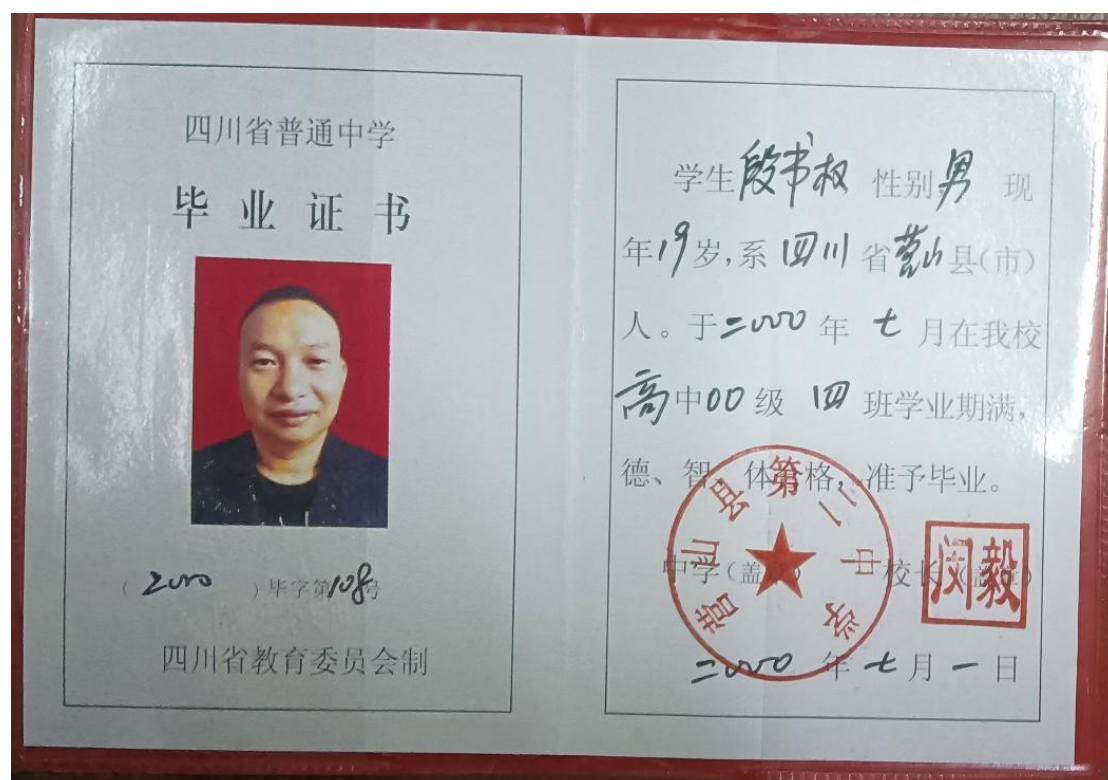 四川省普通中学
毕业证书
(2000)毕字第108号
四川省教育委员会制
学生段书权 性别男 现
年19岁,系四川省营山县(市)
人。于二000年七月在我校
高中00级四班学业期满,
德、智、体合格,准予毕业。
中学(盖章) 校长(盖章)
营山县第二中学
闵毅
二000年七月一日